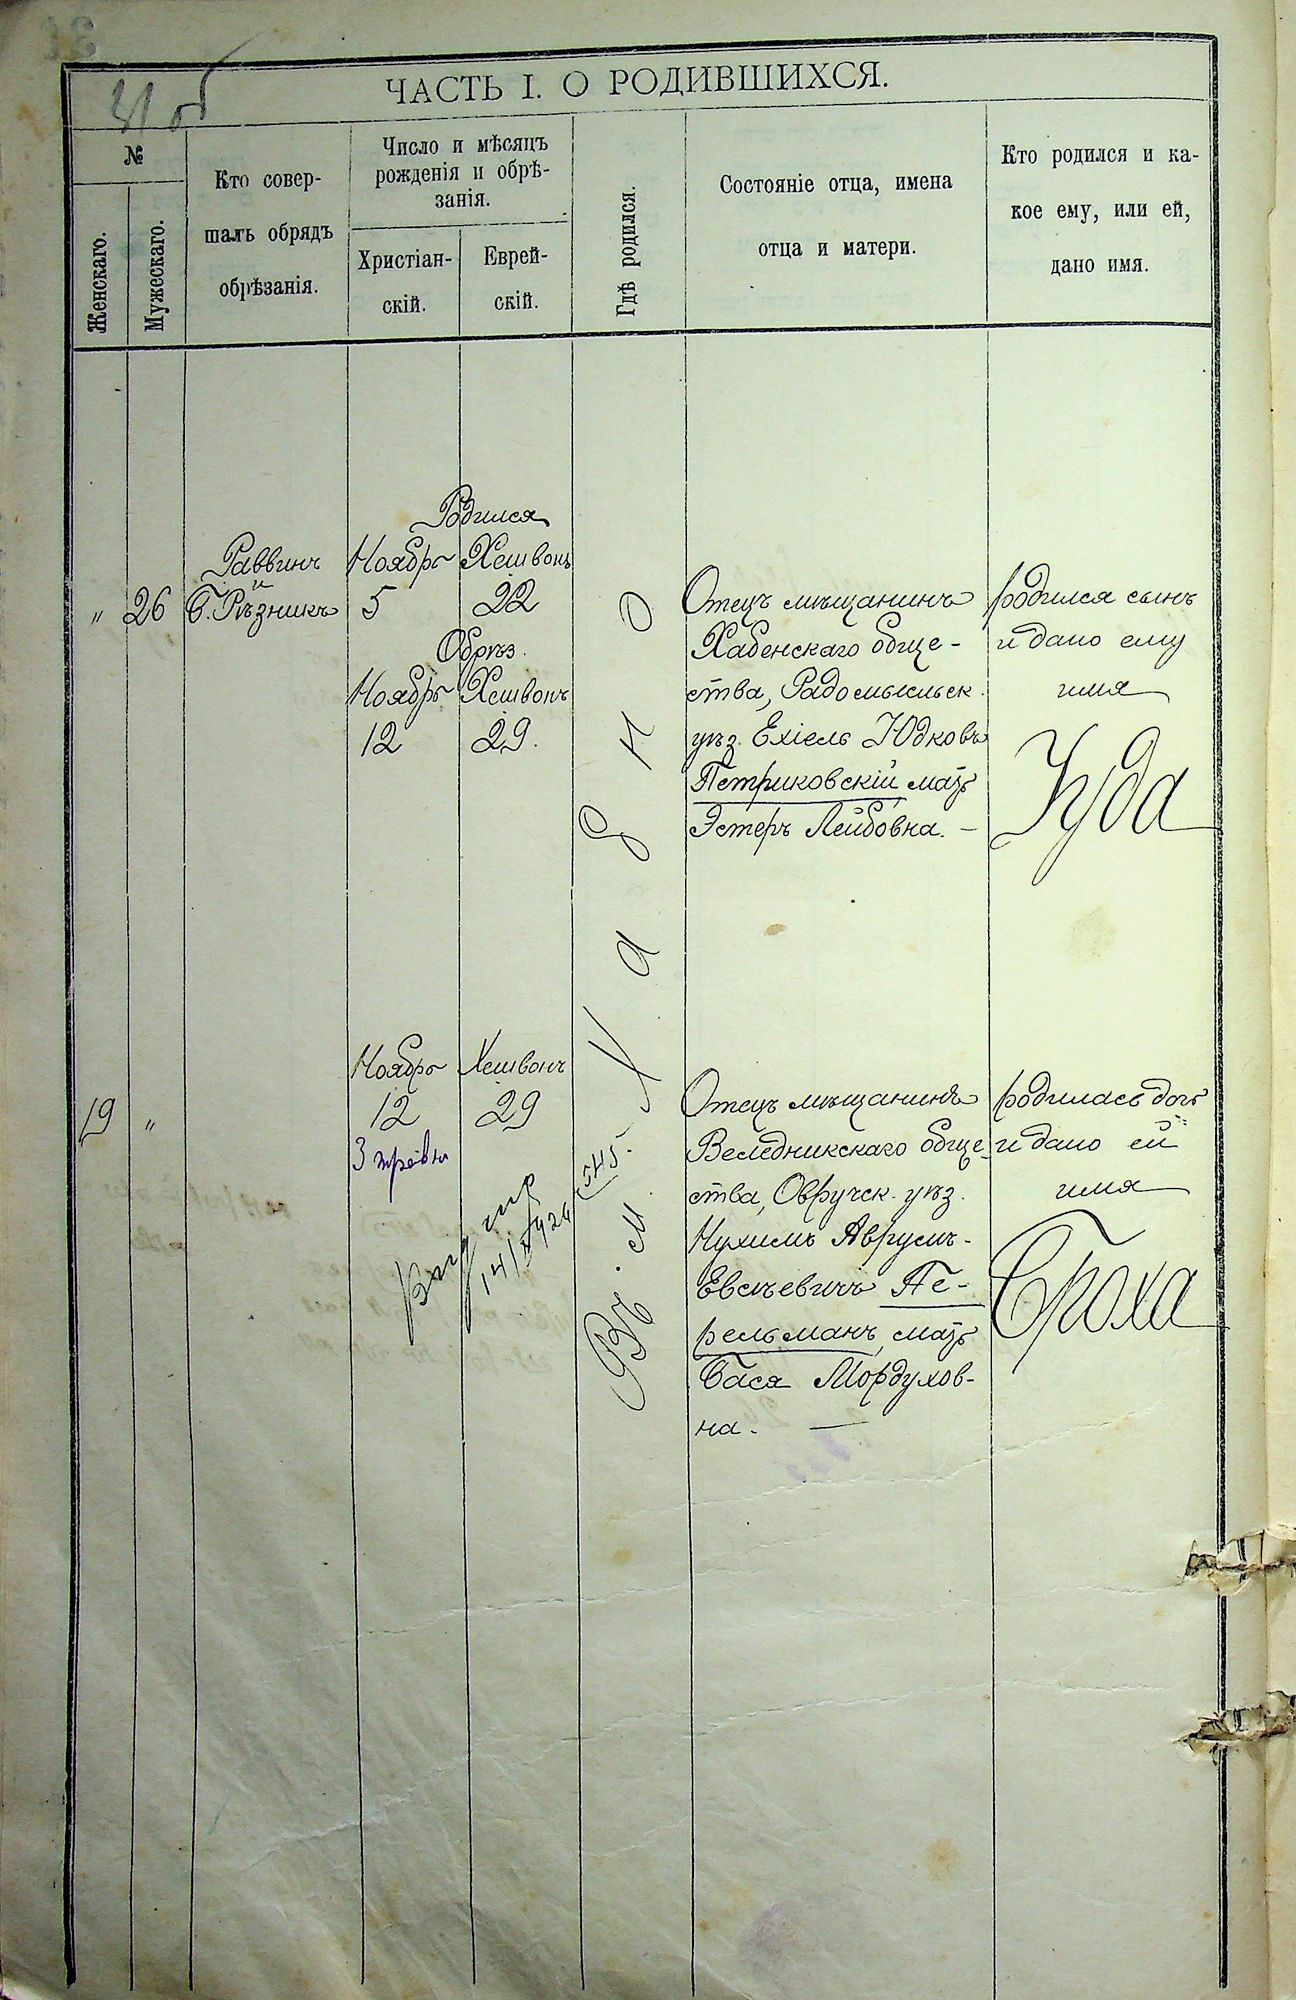 31 об
ЧАСТЬ I. О РОДИВШИХСЯ.
№
Женскаго.
Мужескаго.
Кто совер-
шалъ обрядъ
обрѣзанія.
Число и мѣсяцъ
рожденія и обрѣ-
занія.
Христіан-
скій.
Еврей-
скій.
Гдѣ родился.
Состояніе отца, имена
отца и матери.
Кто родился и ка-
кое ему, или ей,
дано имя.
„ 26
Раввинъ
и
Б. Рѣзникъ
Родился
Ноябрь Хешвонъ
5 22
Обрѣз.
Ноябрь Хешвонъ
12 29.
Въ м. Хабно
Отецъ мѣщанинъ
Хабенскаго обще-
ства, Радомысльск.
уѣз. Ехіель Юдковъ
Петриковскій мать
Эстеръ Лейбовна. —
родился сынъ
и дано ему
имя
Іуда
19 „
Ноябрь Хешвонъ
12 29
545
Отецъ мѣщанинъ
Веледникскаго обще-
ства, Овручск. уѣз.
Нухимъ Аврумъ-
Евсѣевичъ Пе-
рельманъ, мать
Бася Мордухов-
на. —
родилась дочь
и дано ей
имя
Броха